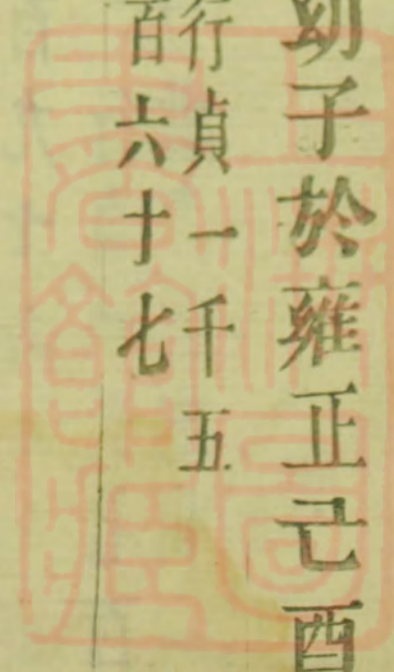 幼子於雍正己酉
行貞一千五
百六十七